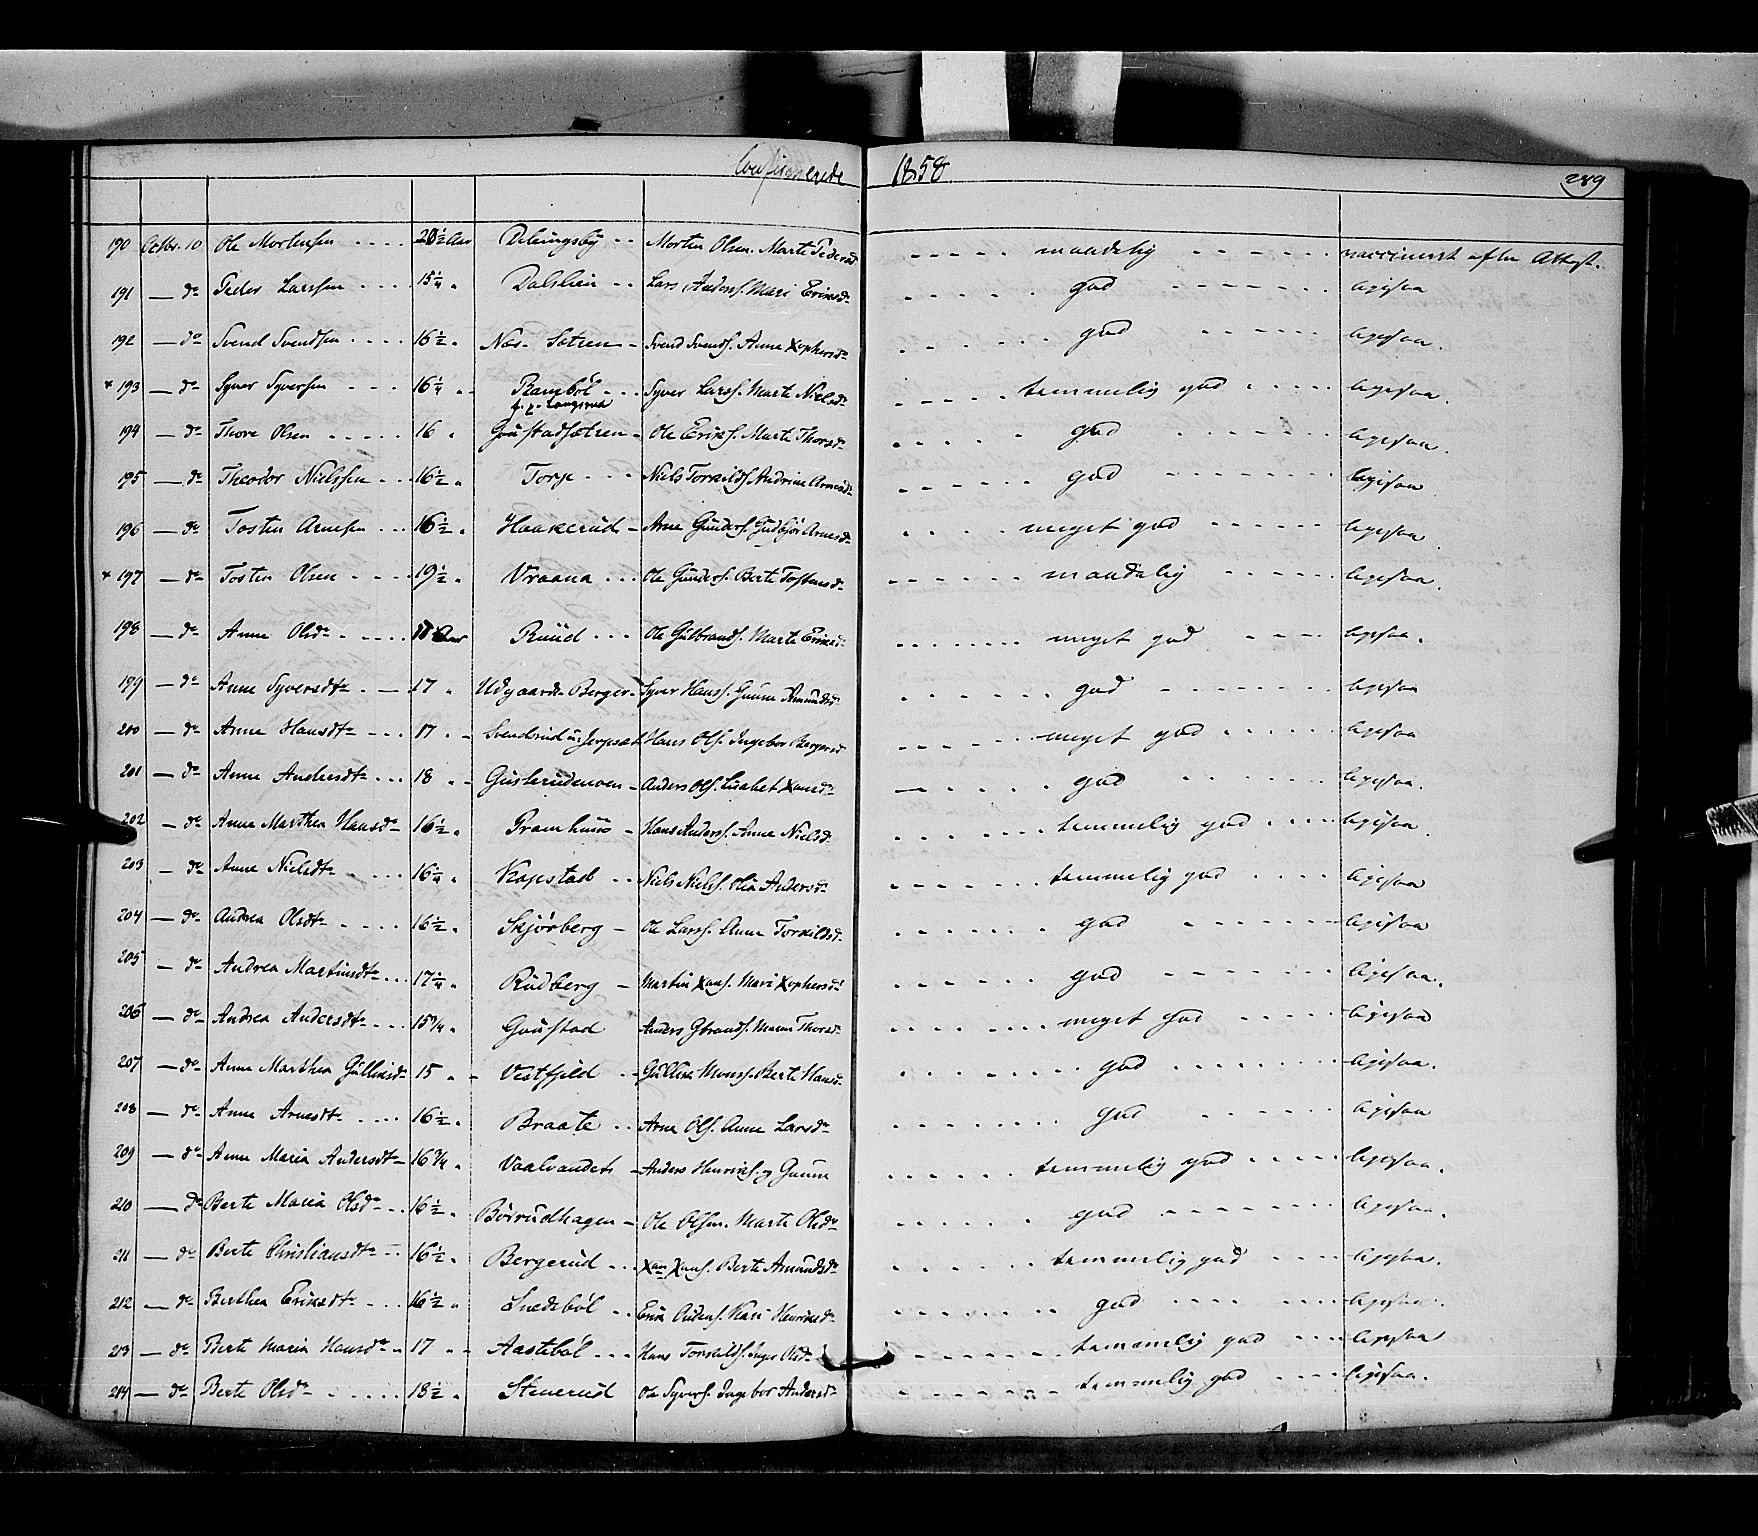 Confirmerede 1858. 289
190 Octbr. 10 Ole Mortensen .... 20½ Aar .. Morten Olsen. Marte Pedersd maadelig vaccineret efter Attest.
191 — do Peder Larssen .... 15¼ " Dalslien .. Lars Anders. Mari Eriksdr god ligesaa
192 — do Svend Svendsen .... 16½ " Næs-Sætren - Svend Svends. Anne Xophersdr god ligesaa.
+ 193 — do Syver Syversen ... 16¼ " Rambøl ... Syver Larss. Marte Nielsdr temmelig god ligesaa.
194 — do Thore Olsen ..... 16 " Gaustadsætren - Ole Eriks. Marte Thorsdr god ligesaa
195 — do Theodor Nielssen ... 16½ " Torp ... Niels Torkilds. Andrine Arnesdr god ligesaa
196 — do Tosten Arnesen ... 16½ " Haakerud - Arne Gunders. Gudbjør Arnesdr meget god ligesaa
+ 197 — do Tosten Olsen .... 19½ " Vraana ... Ole Gunders. Berte Tostensdr maadelig ligesaa.
198 — do Anne Olsdr ..... Aar Ruud ... Ole Gulbrands. Marte Eriksdr meget god ligesaa.
199 — do Anne Syversdtr . — 17 " Udgaards Berger - Syver Hanss. Gunne Amundsdr god ligesaa
200 — do Anne Hansdtr .... 17 " Svendsrud u. Jerpset Hans Ols. Ingebor Bergersdr meget god ligesaa
201 — do Anne Andersdtr ... 18 " Gusterudmoen - Anders Ols. Lisabet Xansdr god ligesaa.
202 — do Anne Marthea Hansdr 16½ " Framhuus - Hans Anderss. Anne Nielsdr temmelig god ligesaa.
203 — do Anne Nielsdtr .... 16¼ " Kopstad .. Niels Nielss. Olia Andersdr temmelig god ligesaa
204 — do Andrea Olsdtr .... 16½ " Skjørberg - Ole Larss. Anne Torkildsdr god ligesaa
205 — do Andrea Martinsdtr ... 17¼ " Rudberg - Martin Xans. Mari Xophersdr god ligesaa.
206 — do Andrea Andersdtr ... 15¾ " Gaustad Anders Gbrands. Maren Thorsdr meget god ligesaa
207 — do Anne Marthea Gulliksdr 15 " Vestfjeld .. Gullik Monss. Berte Hansdr god ligesaa.
208 — do Anne Arnesdtr .... 16½ " Braate .. Arne Ols. Anne Larsdr god ligesaa
209 — do Anne Maria Andersdtr 16¾ " Vaalvandet - Anders Henriks. og Gunne temmelig god ligesaa.
210 — do Berte Maria Olsdr .. 16½ " Børrudhagen - Ole Olsen. Marte Olsdr god ligesaa.
211 — do Berte Christiansdtr .. 16½ " Bergerud ... Xan Xans. Berte Amundsdr temmelig god ligesaa.
212 — do Berthea Eriksdtr ... 16½ " .. Erik Anders. Kari Henriksdr god ligesaa.
213 — do Berte Maria Hansdr . 17 " Aastebøl ... Hans Torkilds. Inger Olsdr temmelig god ligesaa
214 — do Berte Olsdr ..... 18½ " Stenerud Ole Syvers. Ingebor Andersdr temmelig god ligesaa.